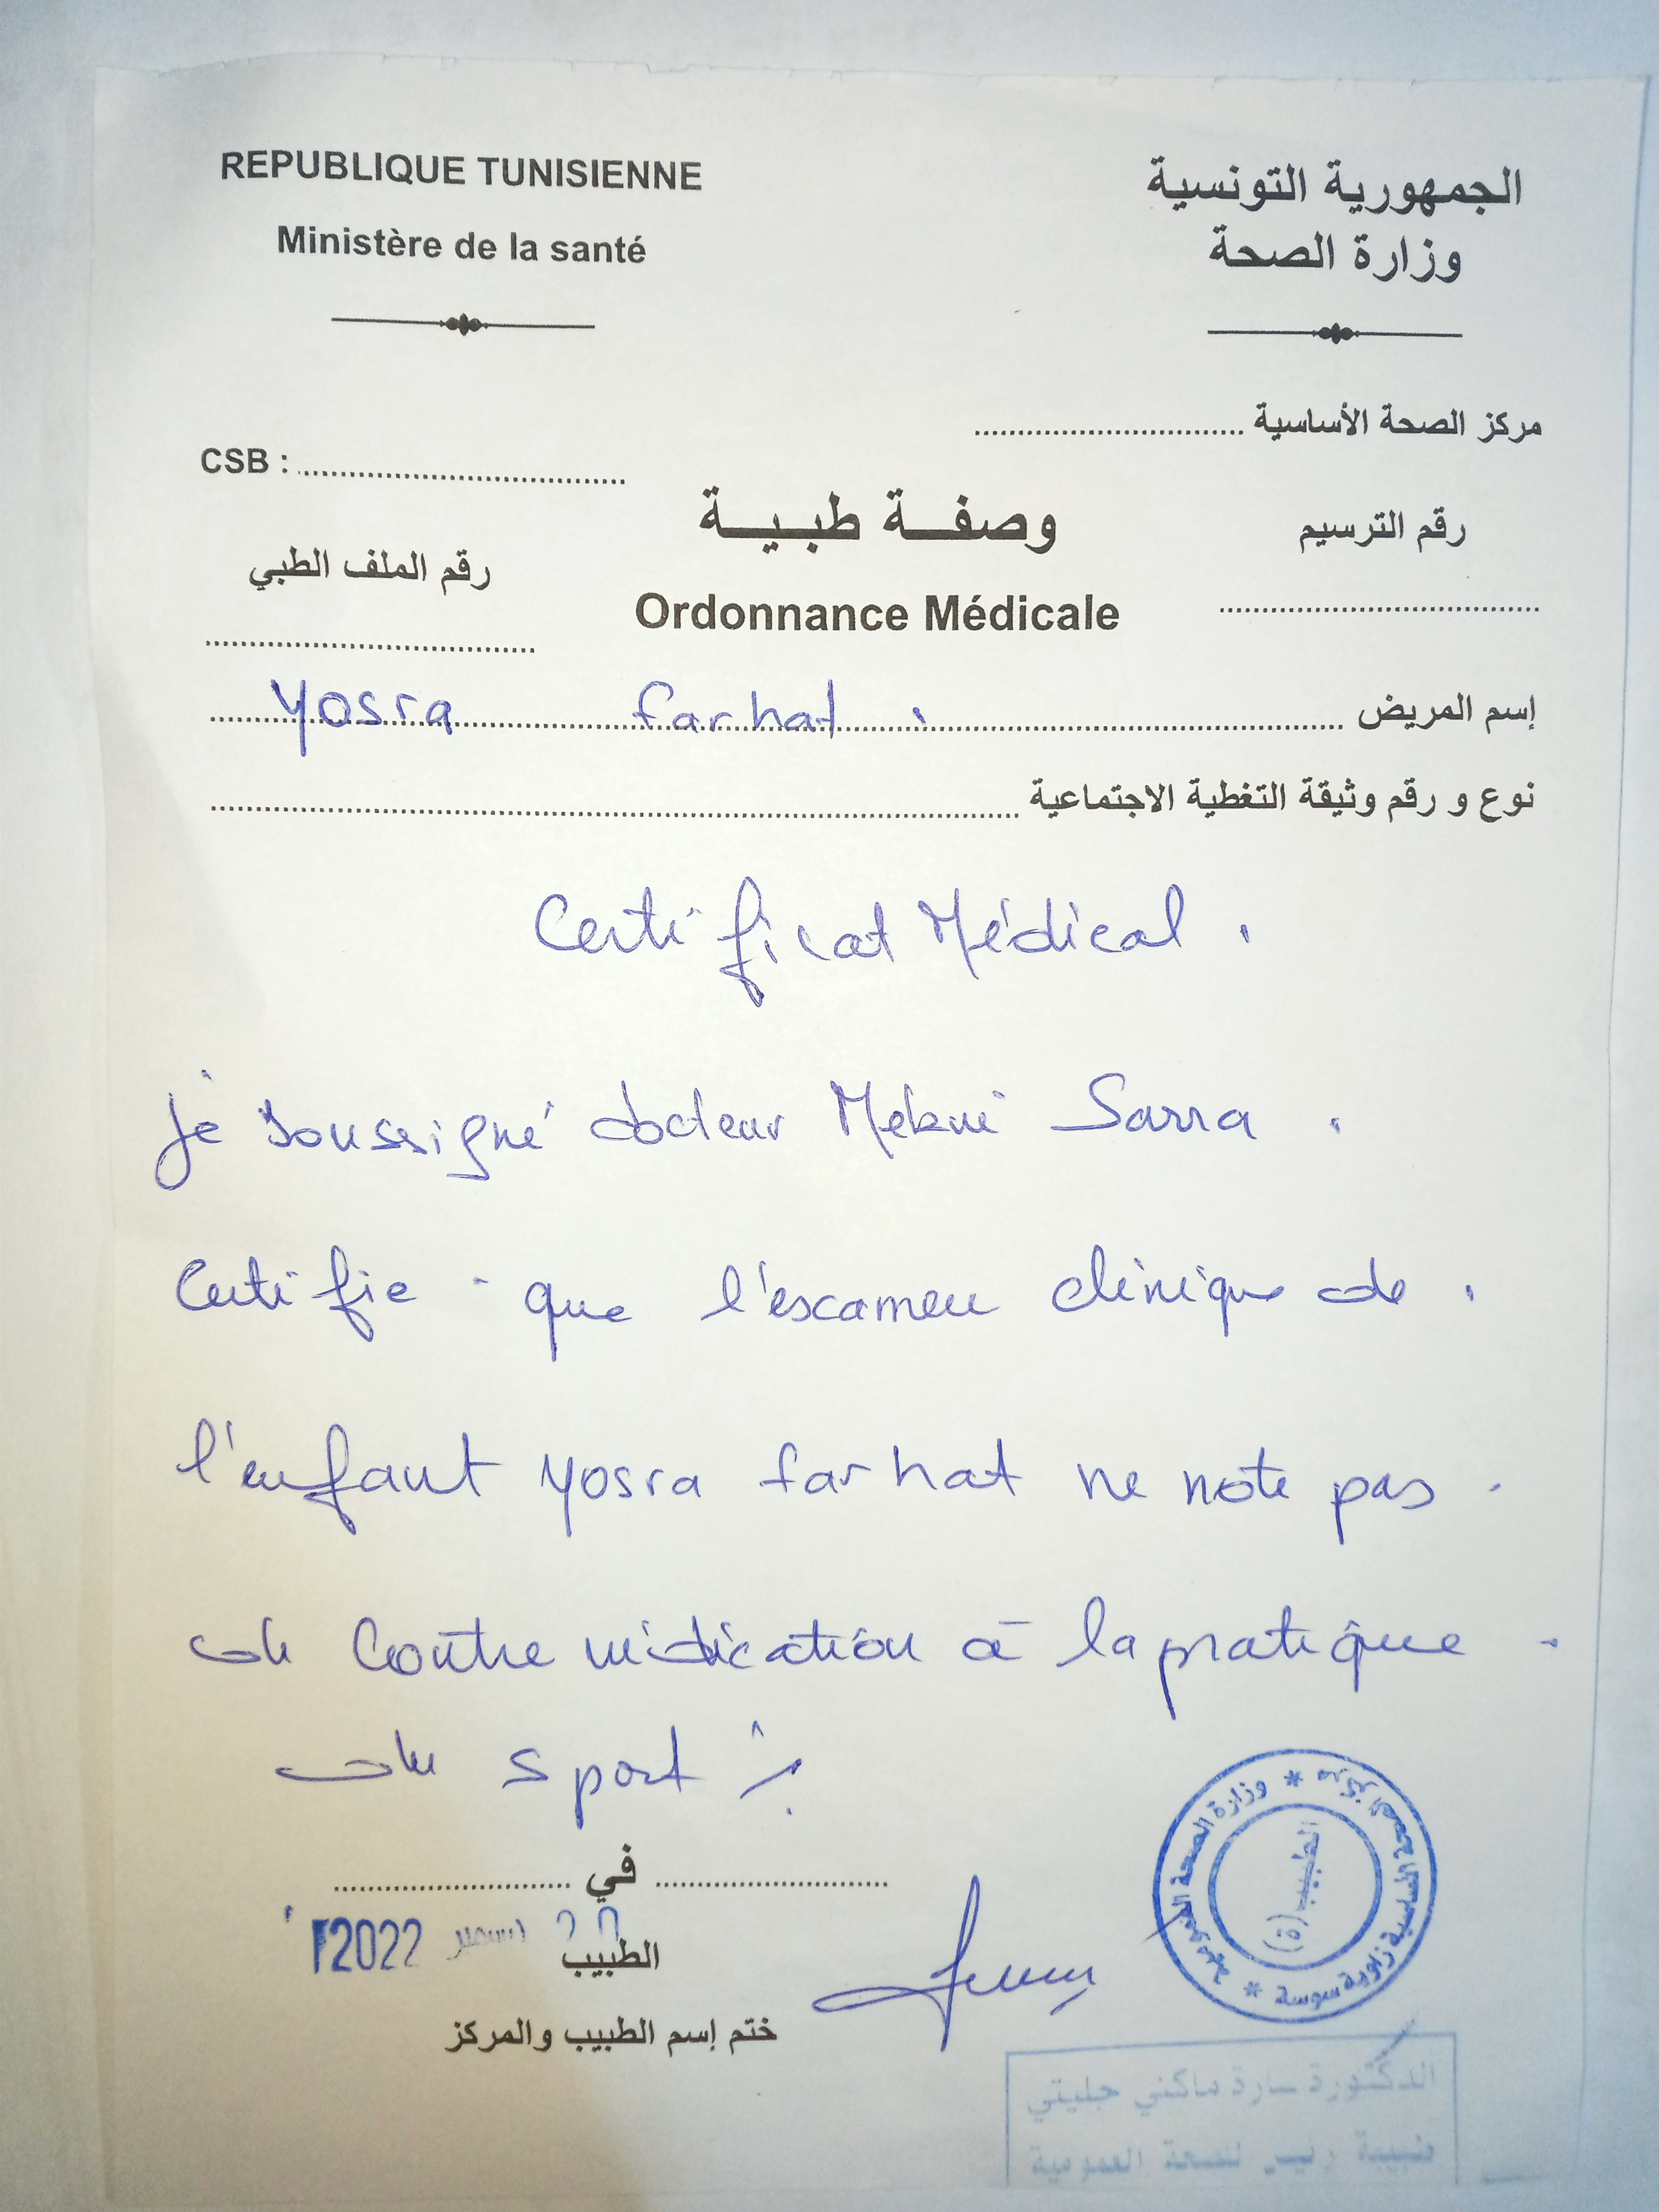 REPUBLIQUE TUNISIENNE
Ministère de la santé
الجمهورية التونسية
وزارة الصحة
مركز الصحة الأساسية
CSB :
وصفة طبية
رقم الترسيم
رقم الملف الطبي
Ordonnance Médicale
إسم المريض
Yosra farhat.
نوع و رقم وثيقة التغطية الاجتماعية
Certificat Médical.
Je soussigné docteur Mekni Sarra.
Certifie que l'examen clinique de.
l'enfant Yosra farhat ne note pas.
de contre indication à la pratique
du sport
في
2022
الطبيب
ختم إسم الطبيب والمركز
وزارة الصحة العمومية * مركز الصحة الأساسية زاوية سوسة *
الطبيب (ة)
الدكتورة سارة ماكني جليتي
طبيبة رئيس للصحة العمومية